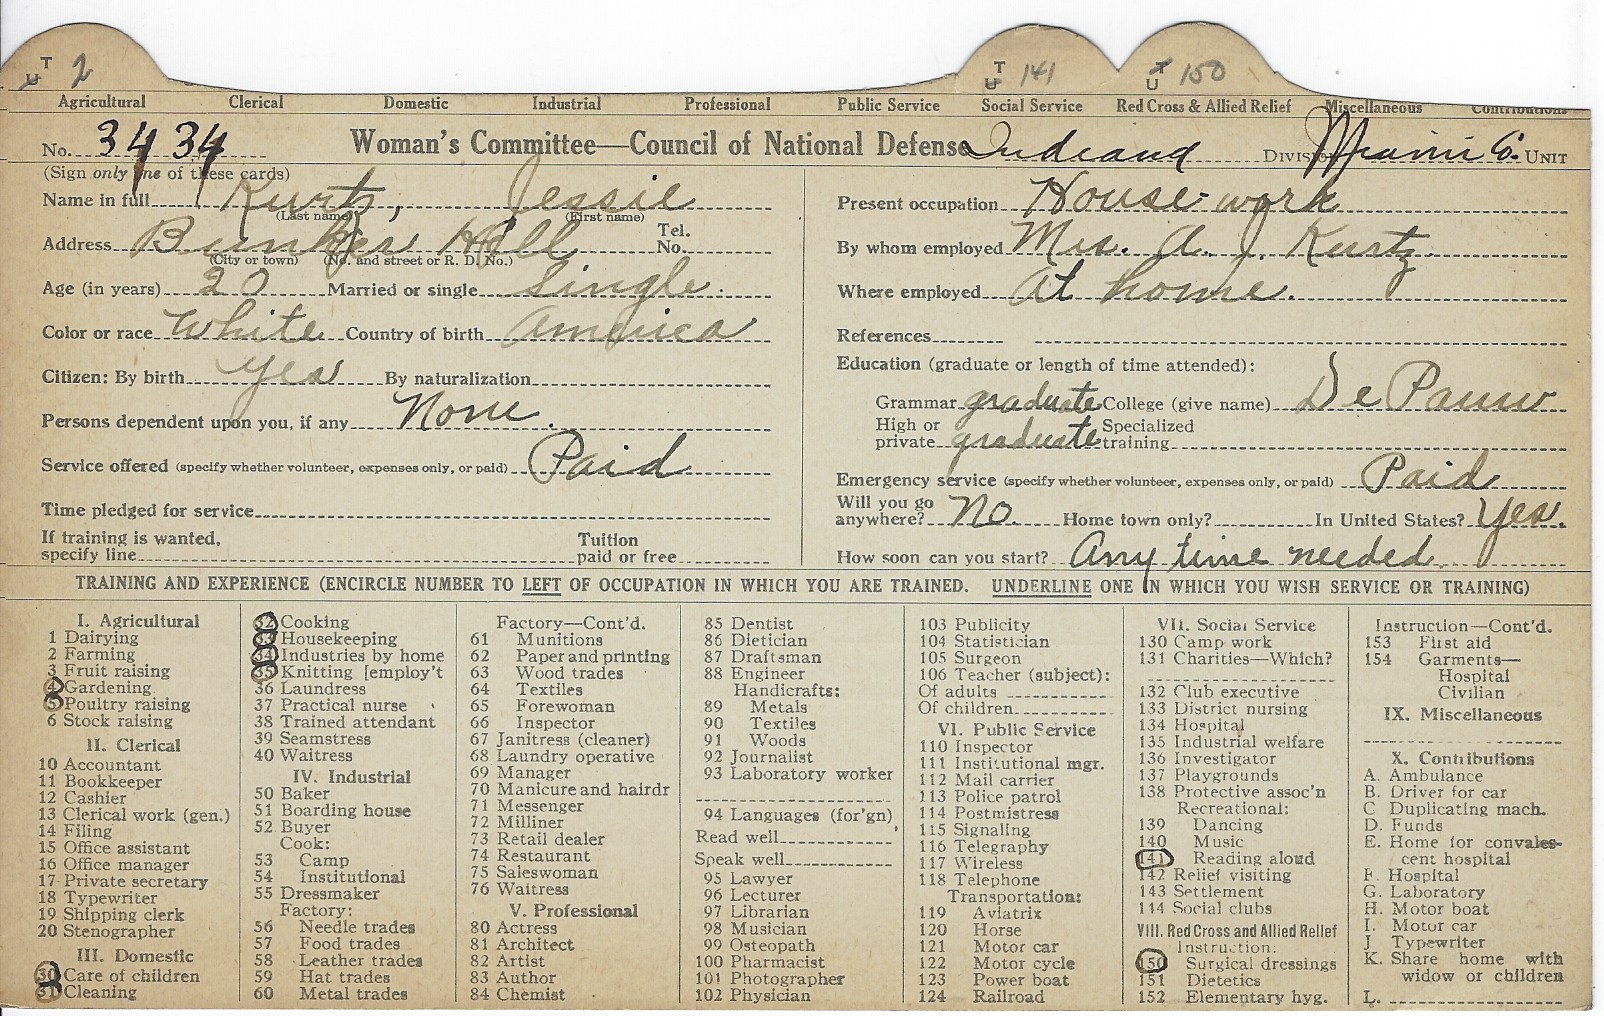 T U 2 T U 141 T U 150
Agricultural Clerical Domestic Industrial Professional Public Service Social Service Red Cross & Allied Relief Miscellaneous Contributions
No. 3434 Woman's Committee—Council of National Defense Indiana Division Miami Co. Unit
(Sign only one of these cards)
Name in full Kurtz, Jessie
(Last name) (First name)
Address Bunker Hill Tel. No.
(City or town) (No. and street or R. D. No.)
Age (in years) 20 Married or single Single.
Color or race White Country of birth America
Citizen: By birth yes By naturalization
Persons dependent upon you, if any None.
Service offered (specify whether volunteer, expenses only, or paid) Paid
Time pledged for service
If training is wanted, specify line Tuition paid or free
Present occupation House work
By whom employed Mrs. A. J. Kurtz.
Where employed At home.
References
Education (graduate or length of time attended):
Grammar graduate College (give name) De Pauw
High or private graduate Specialized training
Emergency service (specify whether volunteer, expenses only, or paid) Paid
Will you go anywhere? No. Home town only? In United States? Yes.
How soon can you start? Any time needed
TRAINING AND EXPERIENCE (ENCIRCLE NUMBER TO LEFT OF OCCUPATION IN WHICH YOU ARE TRAINED. UNDERLINE ONE IN WHICH YOU WISH SERVICE OR TRAINING)
I. Agricultural
1 Dairying
2 Farming
3 Fruit raising
4 Gardening
5 Poultry raising
6 Stock raising
II. Clerical
10 Accountant
11 Bookkeeper
12 Cashier
13 Clerical work (gen.)
14 Filing
15 Office assistant
16 Office manager
17 Private secretary
18 Typewriter
19 Shipping clerk
20 Stenographer
III. Domestic
30 Care of children
31 Cleaning
32 Cooking
33 Housekeeping
34 Industries by home
35 Knitting [employ't
36 Laundress
37 Practical nurse
38 Trained attendant
39 Seamstress
40 Waitress
IV. Industrial
50 Baker
51 Boarding house
52 Buyer
Cook:
53 Camp
54 Institutional
55 Dressmaker
Factory:
56 Needle trades
57 Food trades
58 Leather trades
59 Hat trades
60 Metal trades
Factory—Cont'd.
61 Munitions
62 Paper and printing
63 Wood trades
64 Textiles
65 Forewoman
66 Inspector
67 Janitress (cleaner)
68 Laundry operative
69 Manager
70 Manicure and hairdr
71 Messenger
72 Milliner
73 Retail dealer
74 Restaurant
75 Saleswoman
76 Waitress
V. Professional
80 Actress
81 Architect
82 Artist
83 Author
84 Chemist
85 Dentist
86 Dietician
87 Draftsman
88 Engineer
Handicrafts:
89 Metals
90 Textiles
91 Woods
92 Journalist
93 Laboratory worker
94 Languages (for'gn)
Read well
Speak well
95 Lawyer
96 Lecturer
97 Librarian
98 Musician
99 Osteopath
100 Pharmacist
101 Photographer
102 Physician
103 Publicity
104 Statistician
105 Surgeon
106 Teacher (subject):
Of adults
Of children
VI. Public Service
110 Inspector
111 Institutional mgr.
112 Mail carrier
113 Police patrol
114 Postmistress
115 Signaling
116 Telegraphy
117 Wireless
118 Telephone
Transportation:
119 Aviatrix
120 Horse
121 Motor car
122 Motor cycle
123 Power boat
124 Railroad
VII. Social Service
130 Camp work
131 Charities—Which?
132 Club executive
133 District nursing
134 Hospital
135 Industrial welfare
136 Investigator
137 Playgrounds
138 Protective assoc'n
Recreational:
139 Dancing
140 Music
141 Reading aloud
142 Relief visiting
143 Settlement
144 Social clubs
VIII. Red Cross and Allied Relief
Instruction:
150 Surgical dressings
151 Dietetics
152 Elementary hyg.
Instruction—Cont'd.
153 First aid
154 Garments—
Hospital
Civilian
IX. Miscellaneous
X. Contributions
A. Ambulance
B. Driver for car
C Duplicating mach.
D. Funds
E. Home for convales-
cent hospital
F. Hospital
G. Laboratory
H. Motor boat
I. Motor car
J Typewriter
K. Share home with
widow or children
L.